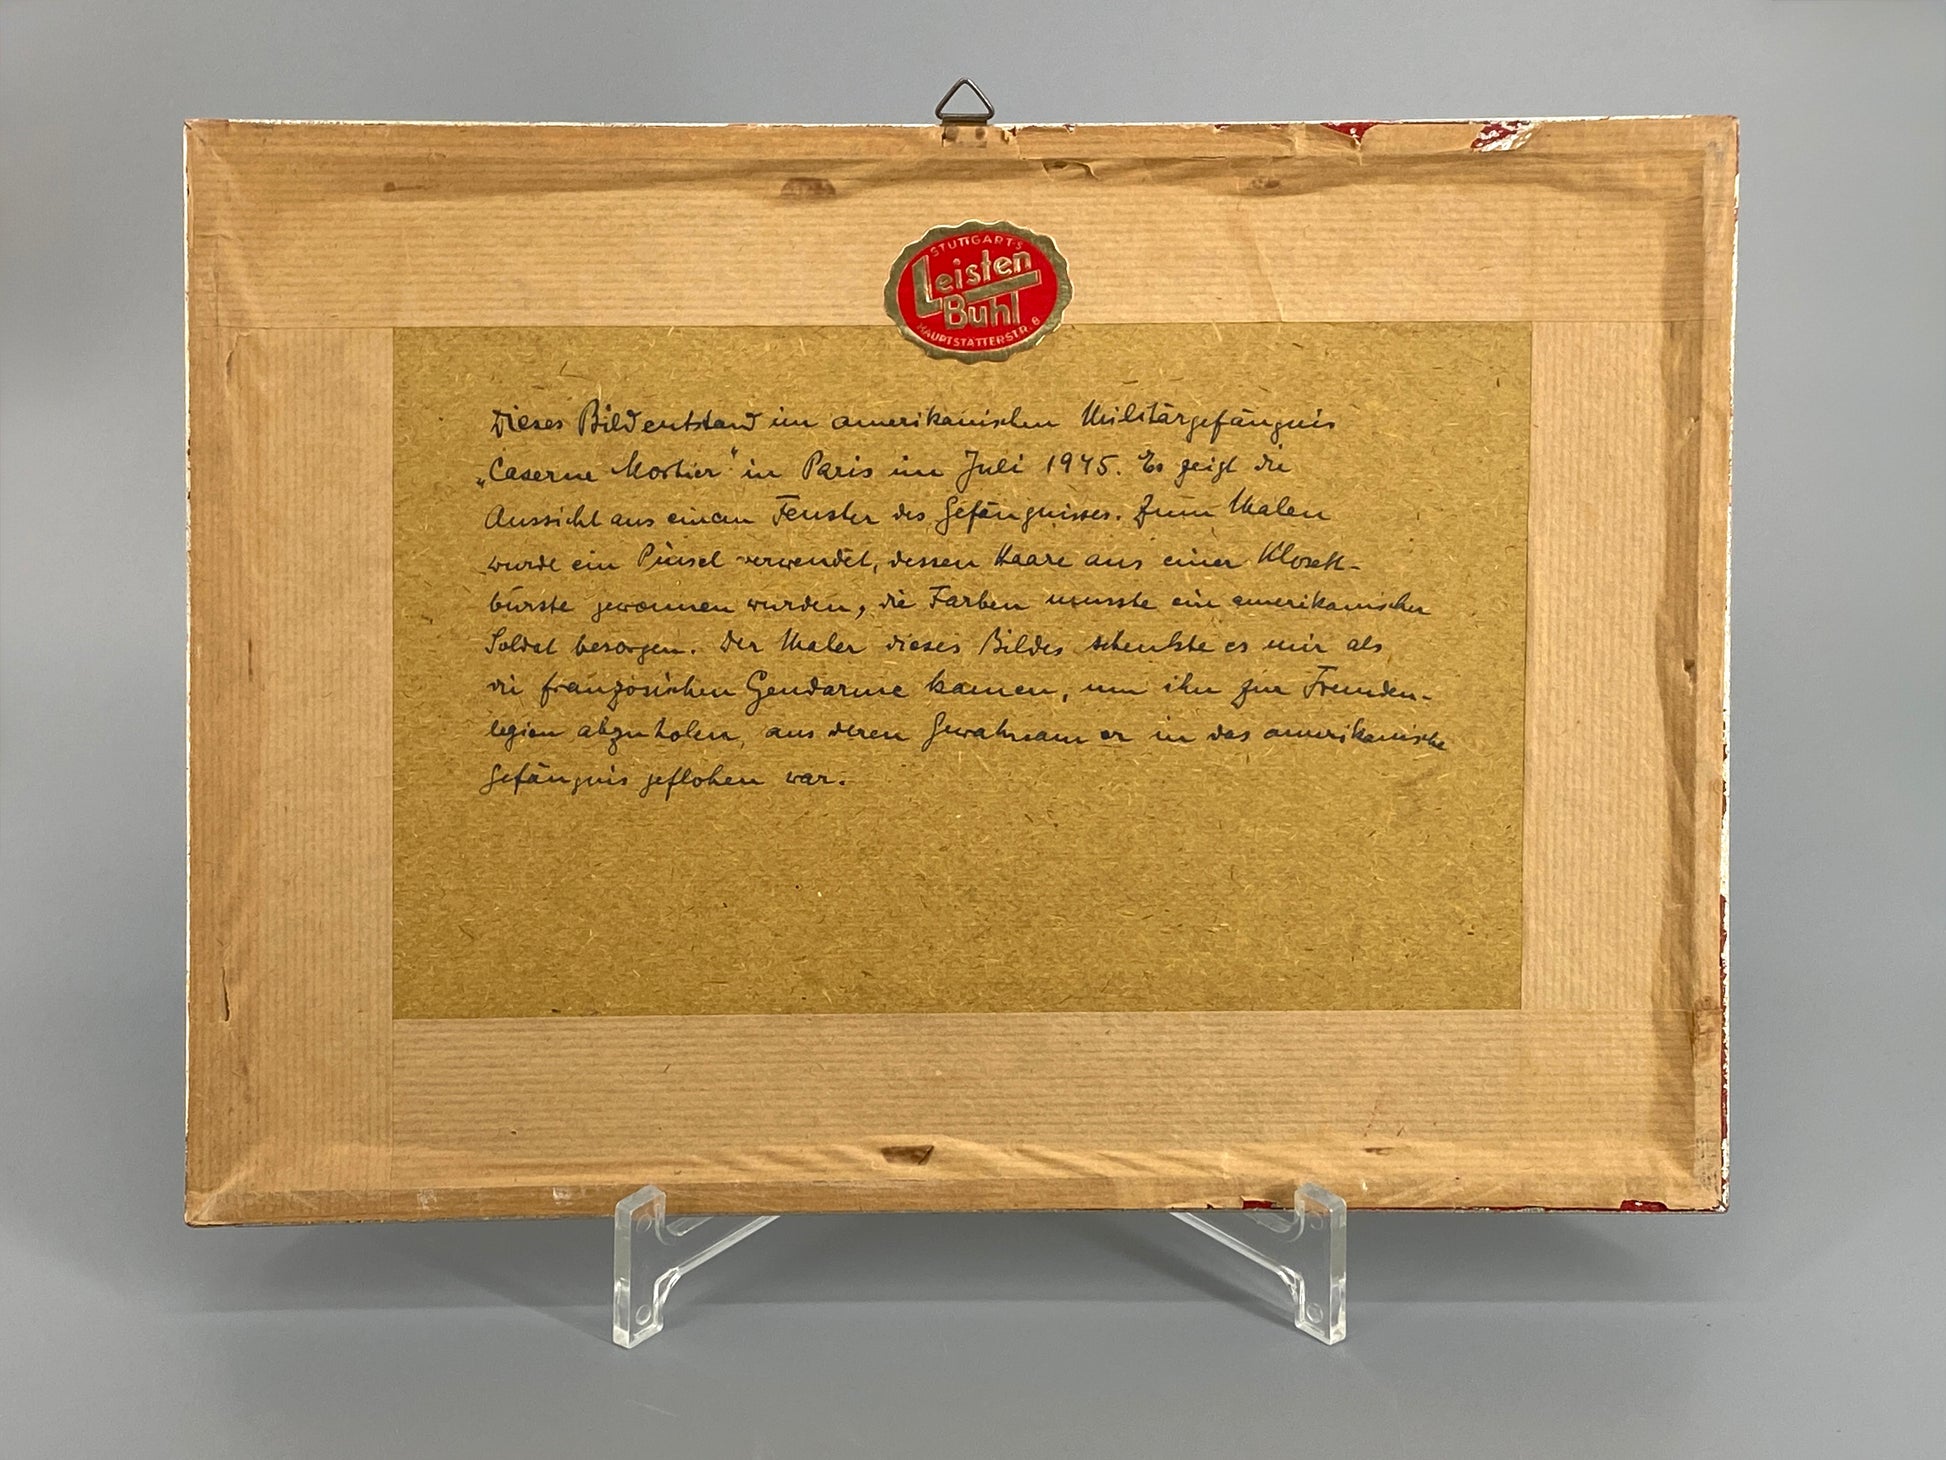 STUTTGARTS
Leisten
Buhl
HAUPTSTÄTTERSTR. 8
Dieses Bild entstand im amerikanischen Militärgefängnis
„Caserne Mortier" in Paris im Juli 1945. Es zeigt die
Aussicht aus einem Fenster des Gefängnisses. Zum Malen
wurde ein Pinsel verwendet, dessen Haare aus einer Klosett-
bürste gewonnen wurden, die Farben musste ein amerikanischer
Soldat besorgen. Der Maler dieses Bildes schenkte es mir als
die französischen Gendarme kamen, um ihn zur Fremden-
legion abzuholen, aus deren Gewahrsam er in das amerikanische
Gefängnis geflohen war.